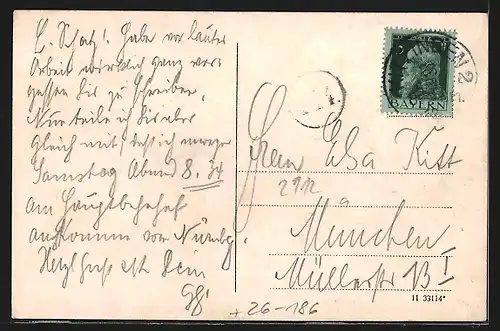 L. Schatz! Habe vor lauter
Arbeit wirklich ganz ver-
gessen Dir zu schreiben,
Nun teile ich Dir aber
gleich mit, daß ich morgen
Samstag Abend 8.34
am Hauptbahnhof
ankomme von Nürnbg.
Herzl. Gruß Dein
BAYERN
2
Frau Elsa Kitt
München
Müllerstr 13 I
II 33114*
+26-186